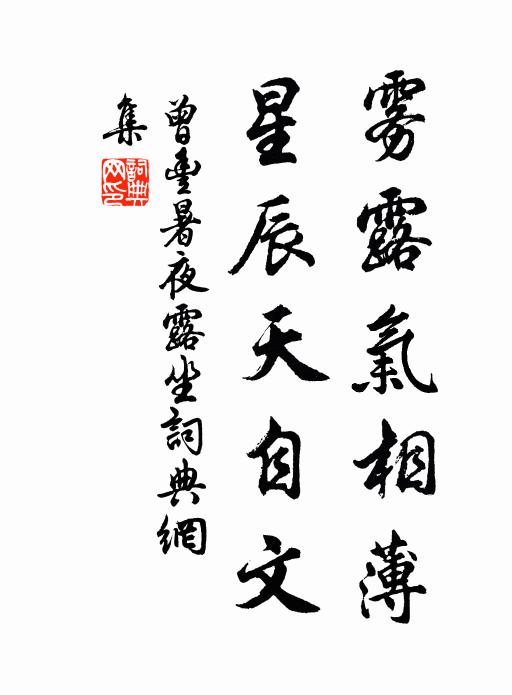 雾露氣相薄
星辰天自文
曾豊暑夜露坐詞典網
集
詞典
网印